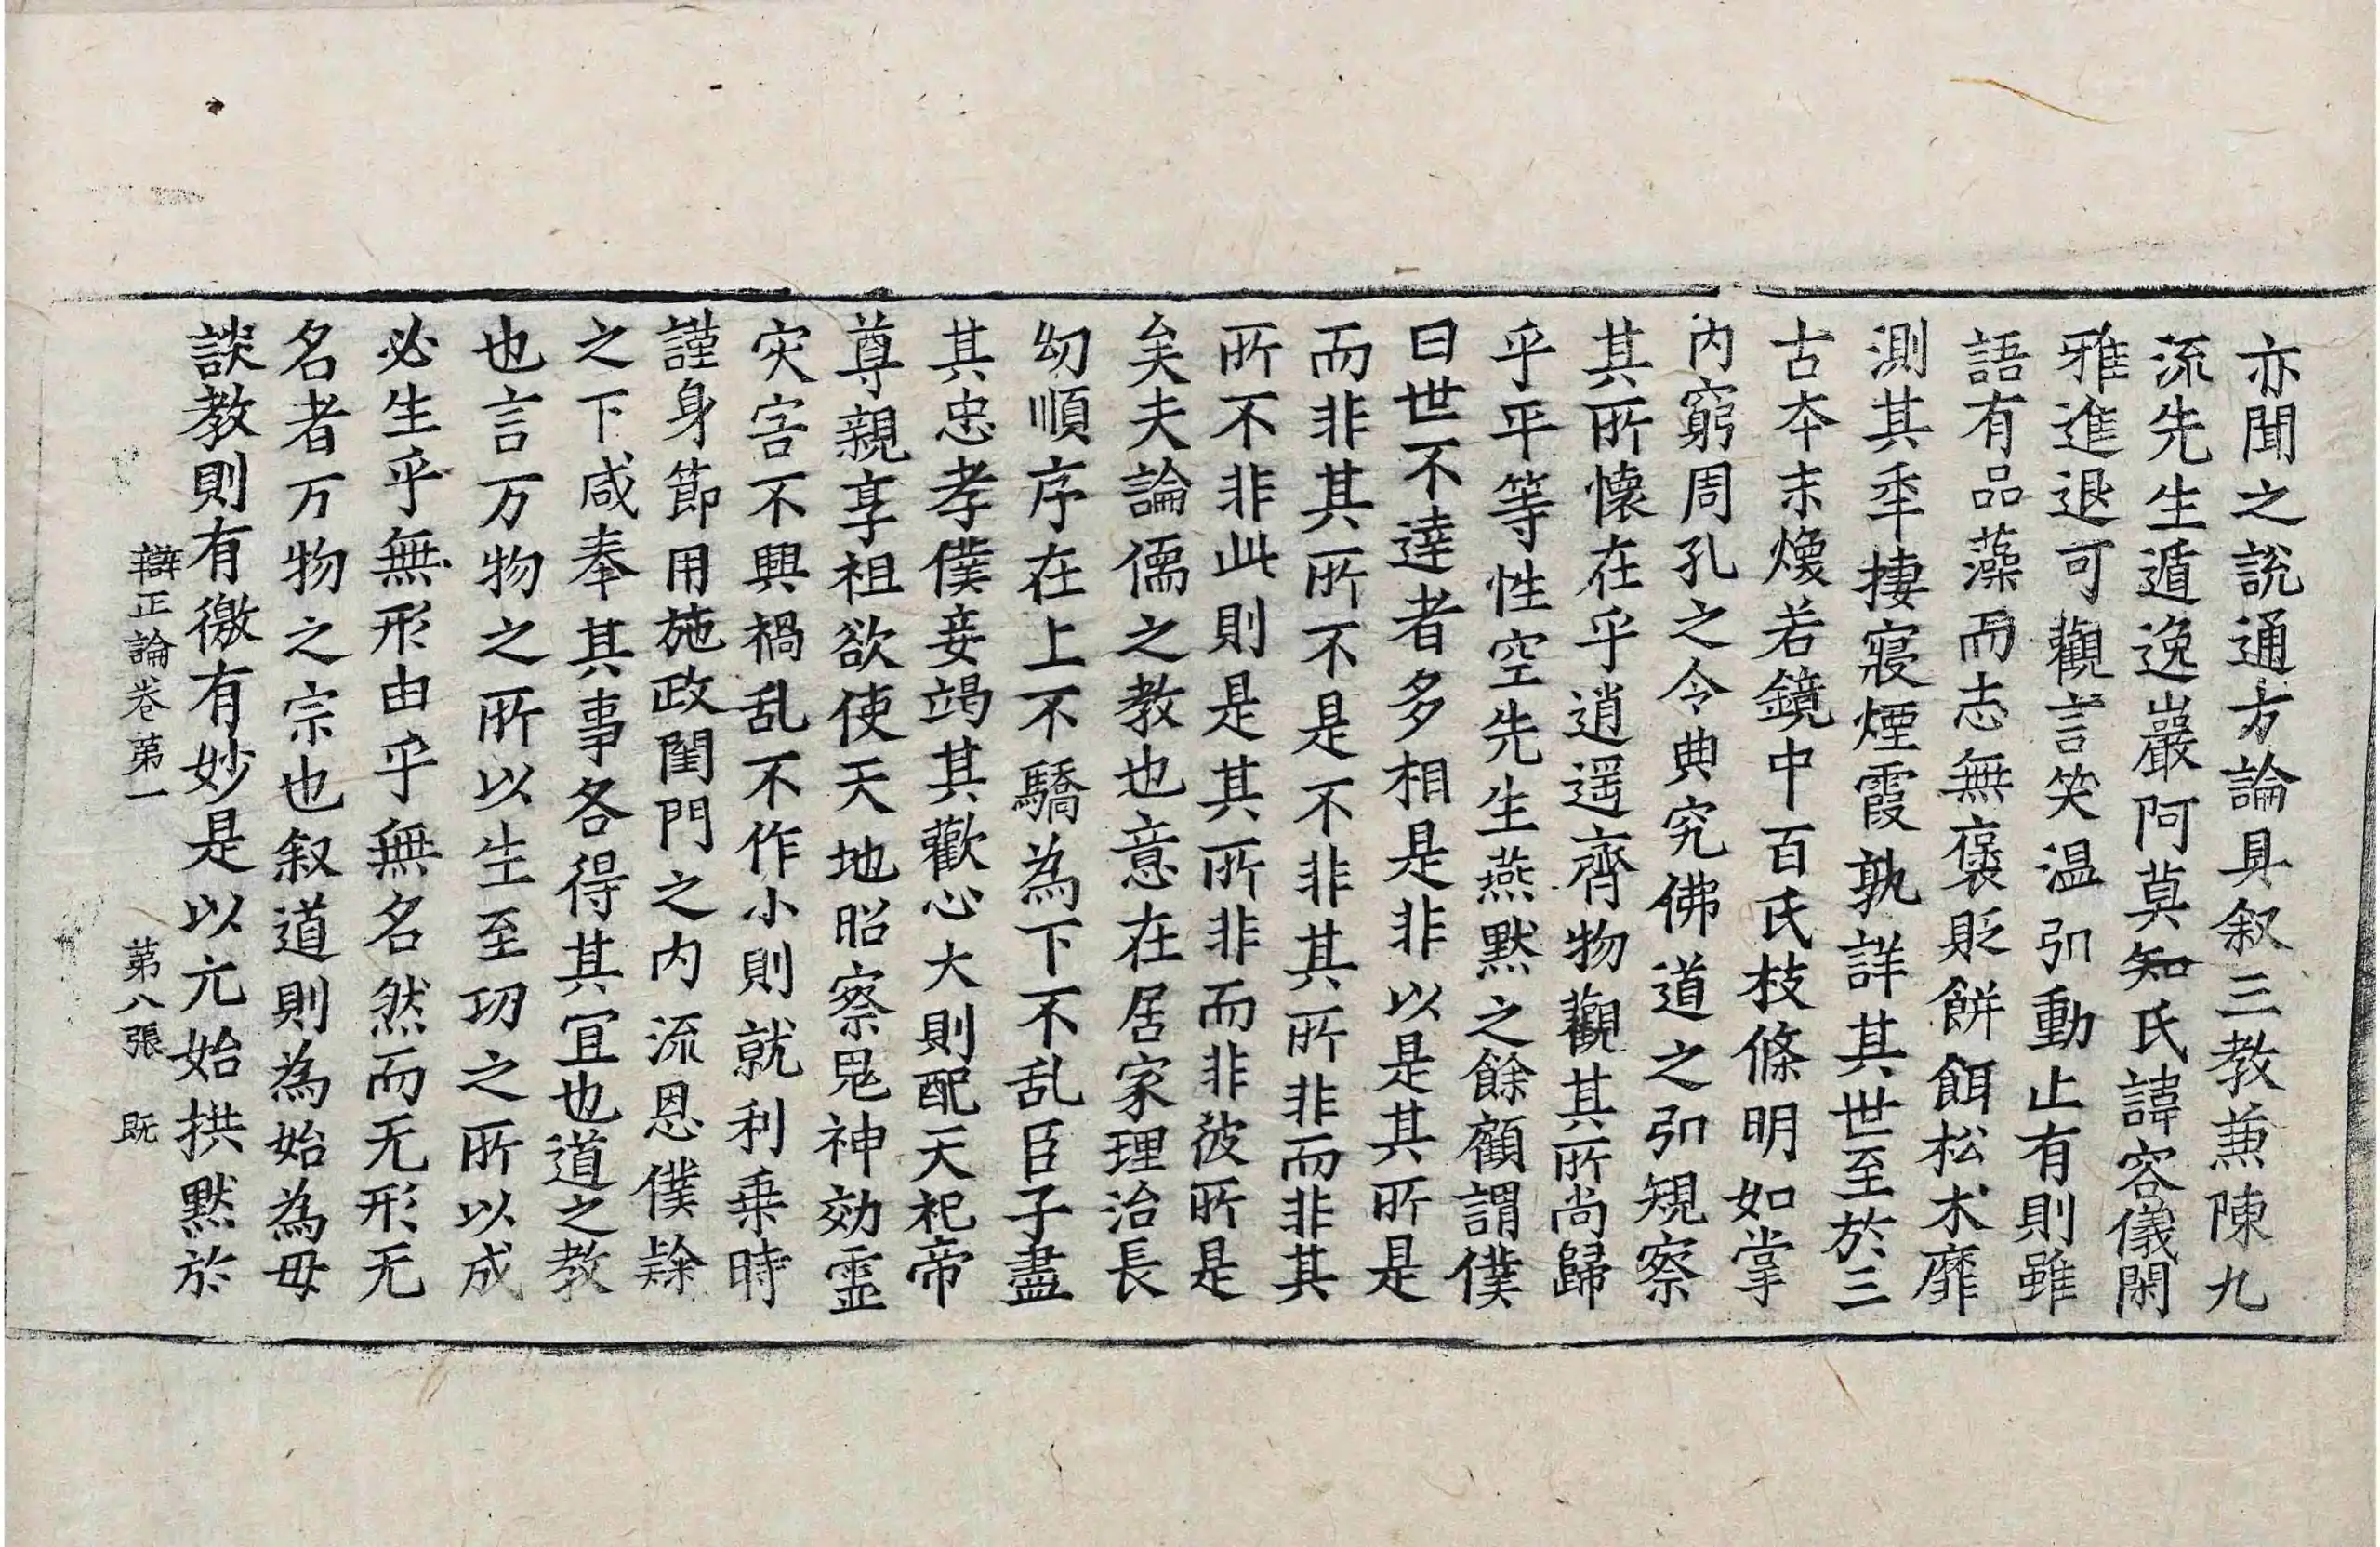 亦聞之說通方論具叙三教兼陳九
流先生遁逸巖阿莫知氏諱容儀閑
雅進退可觀言笑温引動止有則雖
語有品藻而志無褒貶餅餌松木靡
測其年捿寢煙霞孰詳其世至於三
古本末煥若鏡中百氏枝條明如掌
内窮周孔之令典究佛道之引規察
其所懷在乎逍遥齊物觀其所尚歸
乎平等性空先生燕默之餘顧謂僕
曰世不達者多相是非以是其所是
而非其所不是不非其所非而非其
所不非此則是其所非而非彼所是
矣夫論儒之教也意在居家理治長
幼順序在上不驕為下不乱臣子盡
其忠孝僕妾竭其歡心大則配天祀帝
尊親享祖欲使天地昭察鬼神効靈
灾害不興禍乱不作小則就利乗時
謹身節用施政閨門之内流恩僕隸
之下咸奉其事各得其冝也道之教
也言万物之所以生至功之所以成
必生乎無形由乎無名然而无形无
名者万物之宗也叙道則為始為母
談教則有徼有妙是以元始拱默於
辯正論卷第一 第八張 既